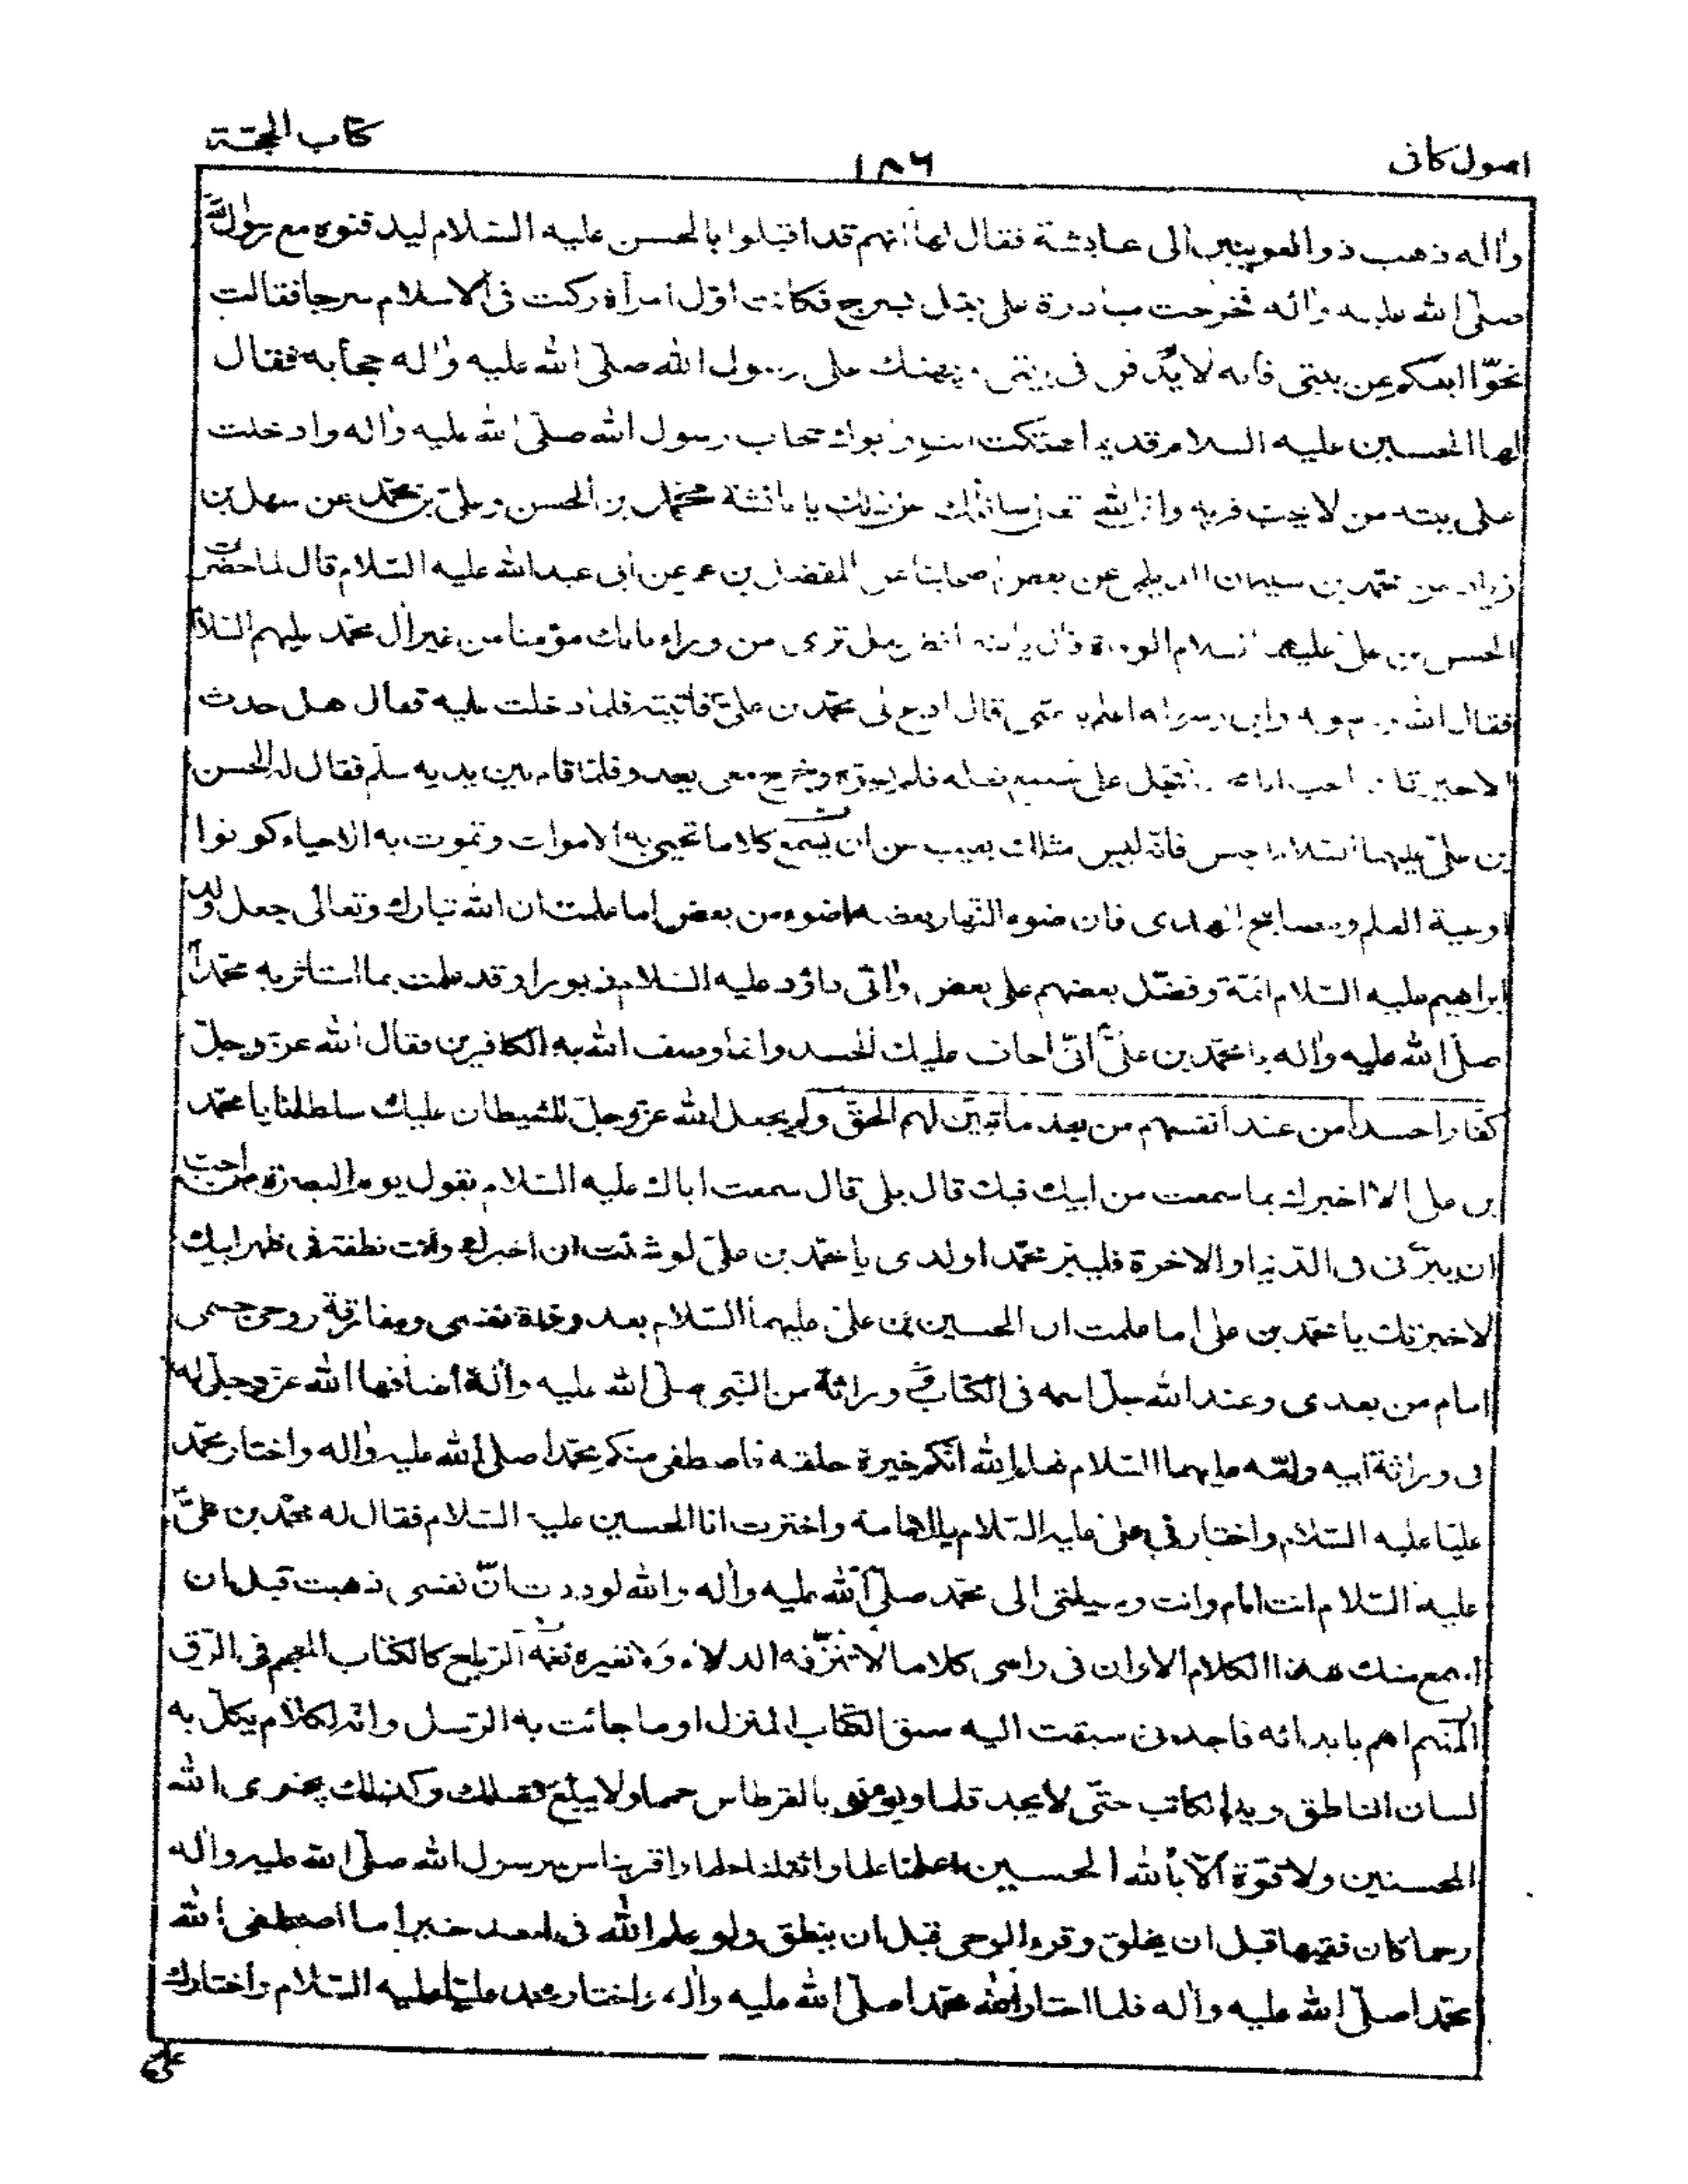 اصول كافى
١٨٦
كتاب الحجّة
واٰله ذهب ذو العوينين الى عايشة فقال لها انهم قد اقبلوا بالحسن عليه السّلام ليدفنوه مع رسول الله
صلّى الله عليه واٰله فخرجت مبادرة على بغل بسرج فكانت اوّل امرأة ركبت فى الاسلام سرجا فقالت
نحّوا ابنكم عن بيتى فانه لا يدفن فى بيتى و يهتك على رسول الله صلّى الله عليه واٰله حجابه فقال
لها الحسين عليه السلام قديما هتكت انت وابوك حجاب رسول الله صلّى الله عليه واٰله وادخلت
على بيته من لا يحب قربه وان الله تعالى سائلك عن ذلك يا عائشة محمّد بن الحسن وعلىّ بن محمّد عن سهل بن
زياد عن محمّد بن سليمان الديلمى عن بعض اصحابنا عن المفضل بن عمر عن ابى عبد الله عليه السّلام قال لما حضرت
الحسن بن على عليهما السلام الوفاة قال يا قنبر انظر هل ترى من وراء بابك مؤمنا من غير اٰل محمّد عليهم السّلام
فقال الله ورسوله وابن رسوله اعلم به منّى قال ادع لى محمّد بن علىّ فاتيته فلمّا دخلت عليه فقال هل حدث
الا خير قلت اجب ابا محمد فتعجّل على شسع نعله فلم يسوّه وخرج معى يعدو فلمّا قام بين يديه سلّم فقال له الحسن
بن علىّ عليهما السّلام اجلس فانّه ليس مثلك يغيب عن ان يسمع كلاما تحيى به الاموات وتموت به الاحياء كونوا
اوعية العلم ومصابيح الهدى فان ضوء النّهار بعضه اضوء من بعض اما علمت ان الله تبارك وتعالى جعل ولد
ابراهيم عليه السّلام ائمّة وفضّل بعضهم على بعض واٰتى داؤد عليه السّلام زبورا وقد علمت بما استاثر به محمّدا
صلّى الله عليه واٰله يا محمّد بن علىّ انّى اخاف عليك الحسد وانما وصف الله به الكافرين فقال الله عز وجلّ
كفّارا حسدا من عند انفسهم من بعد ما تبيّن لهم الحقّ ولم يجعل الله عزّ وجلّ للشيطان عليك سلطانا يا محمّد
بن على الا اخبرك بما سمعت من ابيك فيك قال بلى قال سمعت اباك عليه السّلام يقول يوم البصرة من احبّ
ان يبرّنى فى الدّنيا والاخرة فليبرّ محمّدا ولدى يا محمّد بن علىّ لو شئت ان اخبرك وانت نطفة فى ظهر ابيك
لاخبرتك يا محمّد بن على اما علمت ان الحسين بن علىّ عليهما السّلام بعد وفاة نفسى ومفارقة روحى جسمى
امام من بعدى وعند الله جلّ اسمه فى الكتاب وراثة من النّبى صلّى الله عليه واٰله اضافها الله عز وجلّ له
فى وراثة ابيه وامّه عليهما السّلام فعلم الله انّكم خيرة خلقه فاصطفى منكم محمّدا صلى الله عليه واٰله واختار محمّد
عليّا عليه السّلام واختارنى علىّ عليه السّلام بالامامة واخترت انا الحسين عليه السّلام فقال له محمّد بن علىّ
عليه السّلام انت امام وانت وسيلتى الى محمّد صلّى الله عليه واٰله والله لوددت انّ نفسى ذهبت قبل ان
اسمع منك هذا الكلام الا وان فى راسى كلاما لا تنزفه الدلاء ولا تغيره نغمة الرّياح كالكتاب المعجم فى الرّق
المنمنم اهم بابدائه فاجدنى سبقت اليه سبق الكتاب المنزل او ما جائت به الرّسل وانه لكلام يكلّ به
لسان الناطق ويد الكاتب حتّى لا يجد قلما ويؤتوا بالقرطاس حمما ولا يبلغ فضلك وكذلك يجزى الله
المحسنين ولا قوّة الّا بالله الحسين اعلمنا علما واثقلنا حلما واقربنا من رسول الله صلّى الله عليه واٰله
رحما كان فقيها قبل ان يخلق وقرء الوحى قبل ان ينطق ولو علم الله فى احد خيرا ما اصطفى الله
محمّدا صلّى الله عليه واٰله فلما اختار الله محمّدا صلّى الله عليه واٰله واختار محمد عليّا عليه السّلام واختارك
علىّ